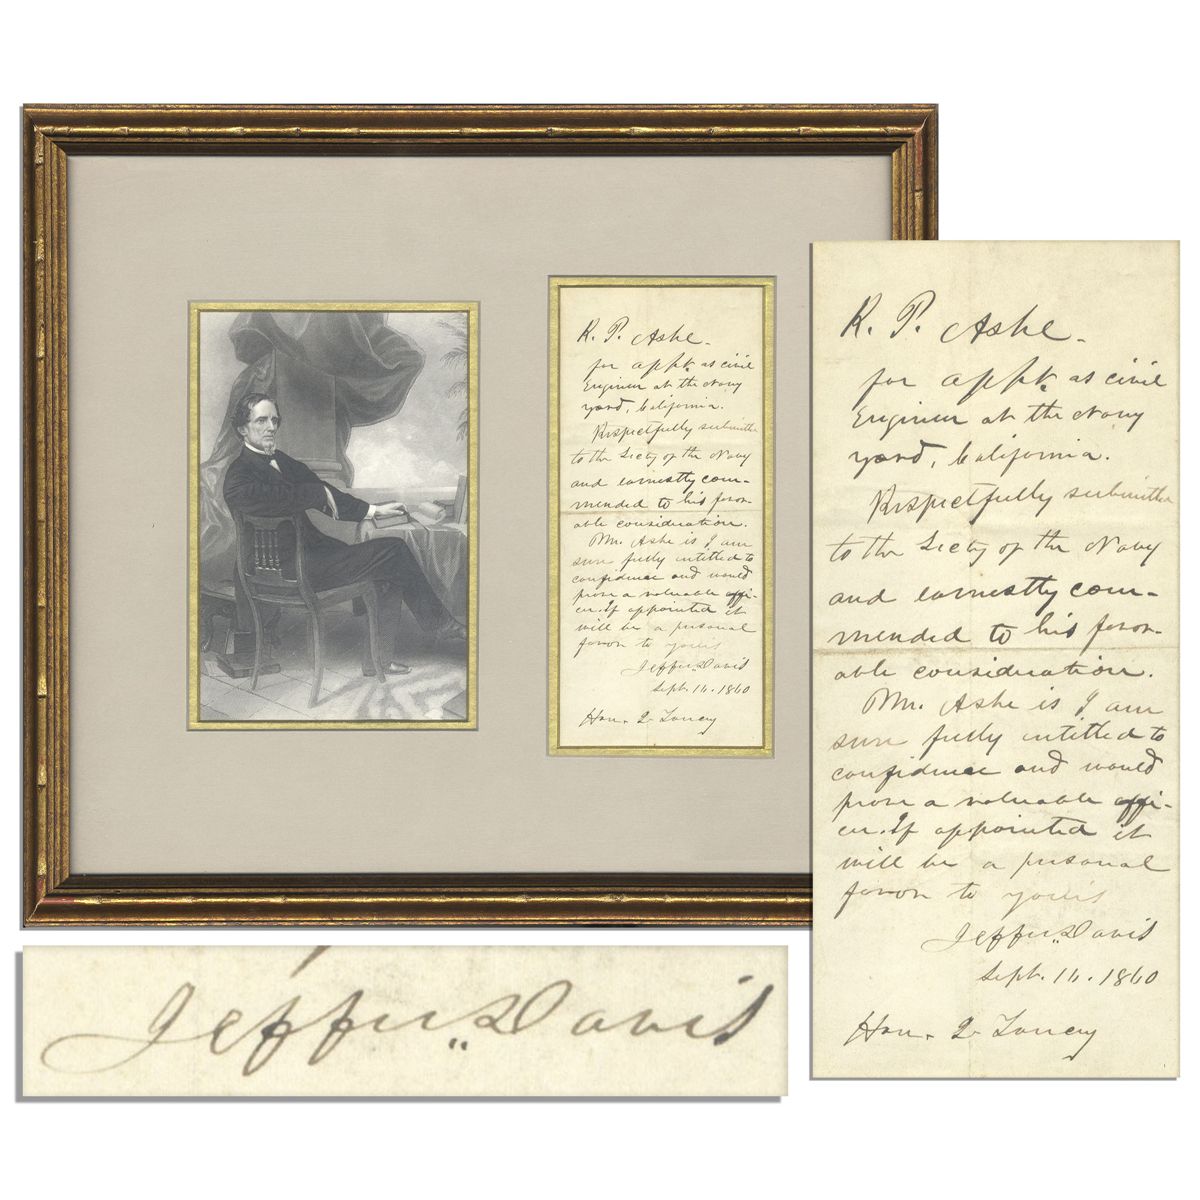 R. P. Ashe.
for appt. as civil
Engineer at the Navy
yard, California.
Respectfully submitted
to the Secty of the Navy
and earnestly com-
mended to his favor-
able consideration.
Mr. Ashe is I am
sure fully entitled to
confidence and would
prove a valuable offi-
cer. If appointed it
will be a personal
favor to yours
Jeffer. Davis
Sept. 16. 1860
Hon. I. Toucey
R. P. Ashe.
for appt. as civil
Engineer at the Navy
yard, California.
Respectfully submitted
to the Secty of the Navy
and earnestly com-
mended to his favor-
able consideration.
Mr. Ashe is I am
sure fully entitled to
confidence and would
prove a valuable offi-
cer. If appointed it
will be a personal
favor to yours
Jeffer. Davis
Sept. 16. 1860
Hon. I. Toucey
Jeffer. Davis